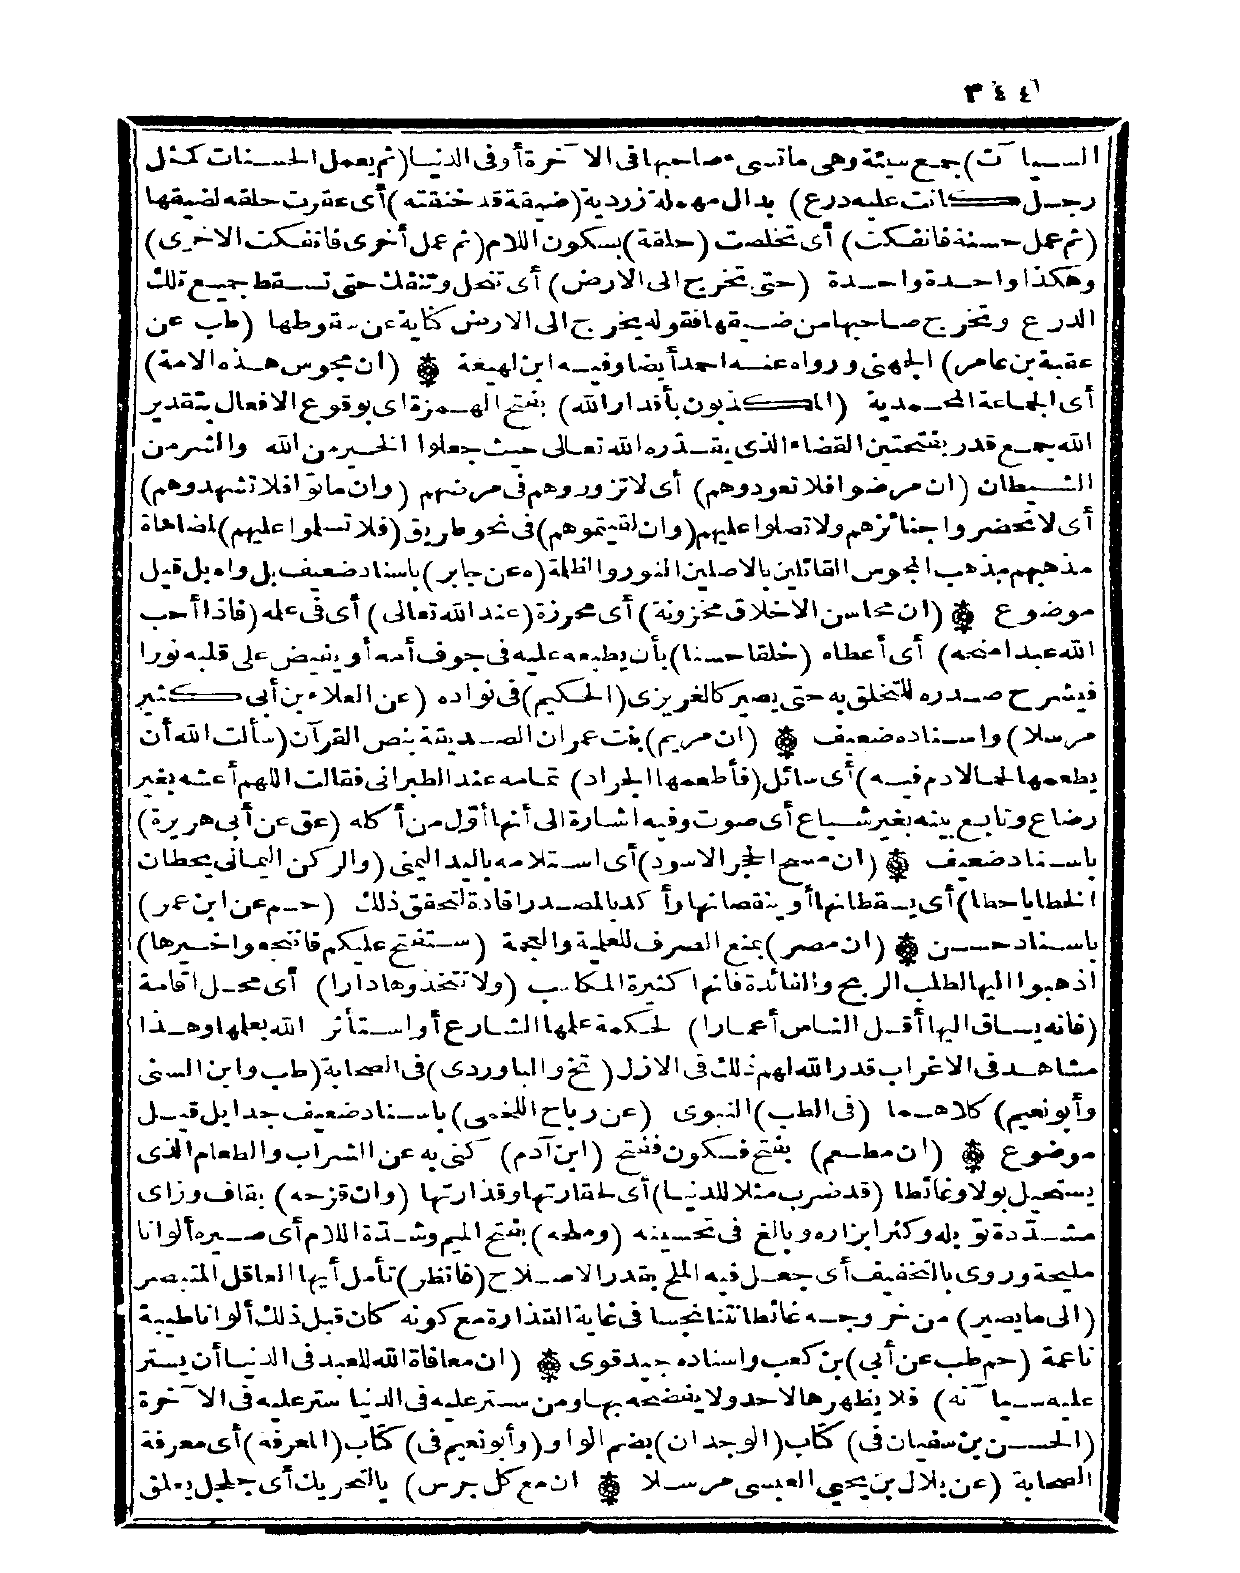 ٣٤٤
السيآت) جمع سيئة وهى ما تسىء صاحبها فى الآخرة أو فى الدنيا (ثم يعمل الحسنات كمثل
رجل كانت عليه درع) بدال مهملة زردية (ضيقة قد خنقته) أى عقرت حلقه لضيقها
(ثم عمل حسنة فانفكت) أى تخلصت (حلقة) بسكون اللام (ثم عمل أخرى فانفكت الاخرى)
وهكذا واحدة واحدة (حتى تخرج الى الارض) أى تنحل وتنفك حتى تسقط جميع تلك
الدرع وتخرج صاحبها من ضيقها فقوله يخرج الى الارض كناية عن سقوطها (طب عن
عقبة بن عامر) الجهنى ورواه عنه احمد أيضا وفيه ابن لهيعة (ان مجوس هذه الامة)
أى الجماعة المحمدية (المكذبون بأقدار الله) بفتح الهمزة اى بوقوع الافعال بتقدير
الله جمع قدر بفتحتين القضاء الذى يقدره الله تعالى حيث جعلوا الخير من الله والشر من
الشيطان (ان مرضوا فلا تعودوهم) أى لا تزوروهم فى مرضهم (وان ماتوا فلا تشهدوهم)
أى لا تحضروا جنائزهم ولا تصلوا عليهم (وان لقيتموهم) فى نحو طريق (فلا تسلموا عليهم) لمضاهاة
مذهبهم بمذهب المجوس القائلين بالاصلين النور والظلمة (ه عن جابر) باسناد ضعيف بل واه بل قيل
موضوع (ان محاسن الاخلاق مخزونة) أى محرزة (عند الله تعالى) أى فى علمه (فاذا أحب
الله عبدا منحه) أى أعطاه (خلقا حسنا) بأن يطبعه عليه فى جوف أمه أو يفيض على قلبه نورا
فيشرح صدره للتخلق به حتى يصير كالغريزى (الحكيم) فى نوادره (عن العلاء بن أبى كثير
مرسلا) واسناده ضعيف (ان مريم) بنت عمران الصديقة بنص القرآن (سألت الله أن
يطعمها لحما لا دم فيه) أى سائل (فأطعمها الجراد) تمامه عند الطبرانى فقالت اللهم أعشه بغير
رضاع وتابع بينه بغير شياع أى صوت وفيه اشارة الى أنها أول من أكله (عق عن أبى هريرة)
باسناد ضعيف (ان مسح الحجر الاسود) أى استلامه باليد اليمنى (والركن اليمانى يحطان
الخطايا حطا) أى يسقطانها أو ينقصانها وأكد بالمصدر افادة لتحقق ذلك (حم عن ابن عمر)
باسناد حسن (ان مصر) بمنع الصرف للعلمية والعجمة (ستفتح عليكم فانتجعوا خيرها)
اذهبوا اليها لطلب الربح والفائدة فانها كثيرة المكاسب (ولا تتخذوها دارا) أى محل اقامة
(فانه يساق اليها أقل الناس أعمارا) لحكمة علمها الشارع أو استأثر الله بعلمها وهذا
مشاهد فى الاغراب قدر الله لهم ذلك فى الازل (تخ والباوردى) فى الصحابة (طب وابن السنى
وأبو نعيم) كلاهما (فى الطب) النبوى (عن رباح اللخمى) باسناد ضعيف جدا بل قيل
موضوع (ان مطعم) بفتح فسكون ففتح (ابن آدم) كنى به عن الشراب والطعام الذى
يستحيل بولا وغائطا (قد ضرب مثلا للدنيا) أى لحقارتها وقذارتها (وان قزحه) بقاف وزاى
مشددة توبله وكثر ابزاره وبالغ فى تحسينه (وملحه) بفتح الميم وشدة اللام أى صيره ألوانا
مليحة وروى بالتخفيف أى جعل فيه الملح بقدر الاصلاح (فانظر) تأمل أيها العاقل المتبصر
(الى ما يصير) من خروجه غائطا نتنا نجسا فى غاية القذارة مع كونه كان قبل ذلك ألوانا طيبة
ناعمة (حم طب عن أبي) بن كعب واسناده جيد قوى (ان معافاة الله للعبد فى الدنيا أن يستر
عليه سيآته) فلا يظهرها لاحد ولا يفضحه بها ومن ستر عليه فى الدنيا ستر عليه فى الآخرة
(الحسن بن سفيان فى) كتاب (الوحدان) بضم الواو (وأبو نعيم فى) كتاب (المعرفه) أى معرفة
الصحابة (عن بلال بن يحيى العبسى مرسلا ان مع كل جرس) بالتحريك أى جلجل يعلق